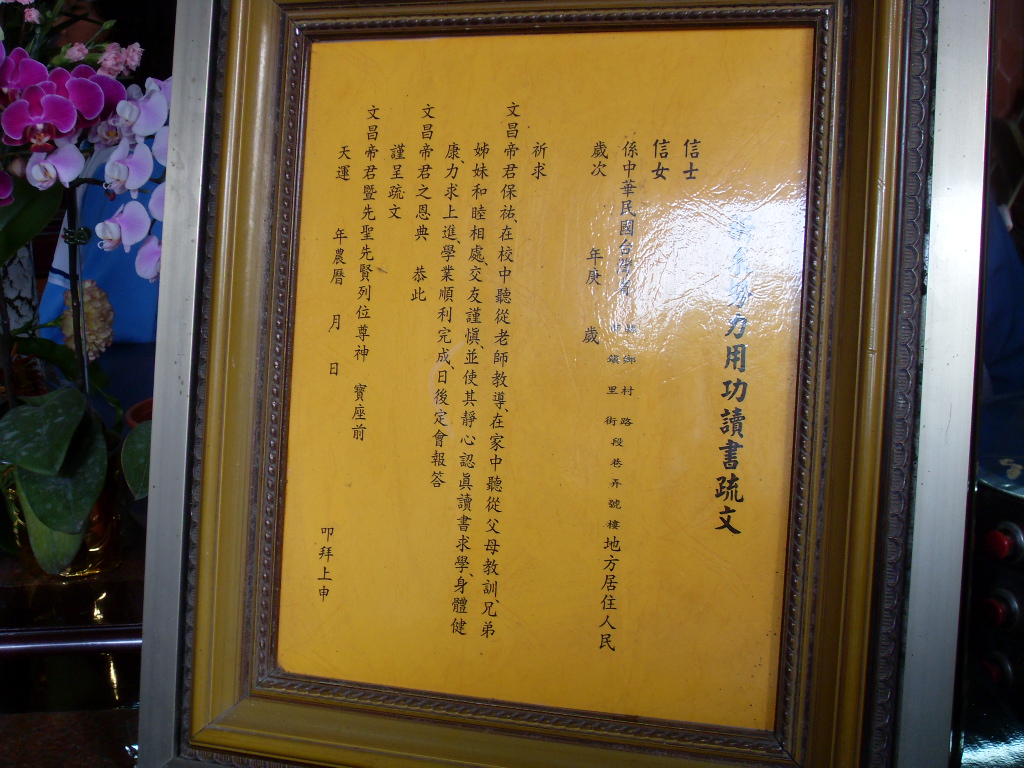 力用功讀書疏文
信士
信女
係中華民國台灣省 縣市 鄉鎮 村里 路街 段 巷 弄 號 樓 地方居住人民
歲次 年庚 歲
祈求
文昌帝君保祐、在校中聽從老師教導、在家中聽從父母教訓、兄弟
姊妹和睦相處、交友謹慎、並使其靜心認眞讀書求學、身體健
康、力求上進、學業順利完成、日後定會報答
文昌帝君之恩典 恭此
謹呈疏文
文昌帝君暨先聖先賢列位尊神 寶座前
天運 年農曆 月 日
叩拜上申